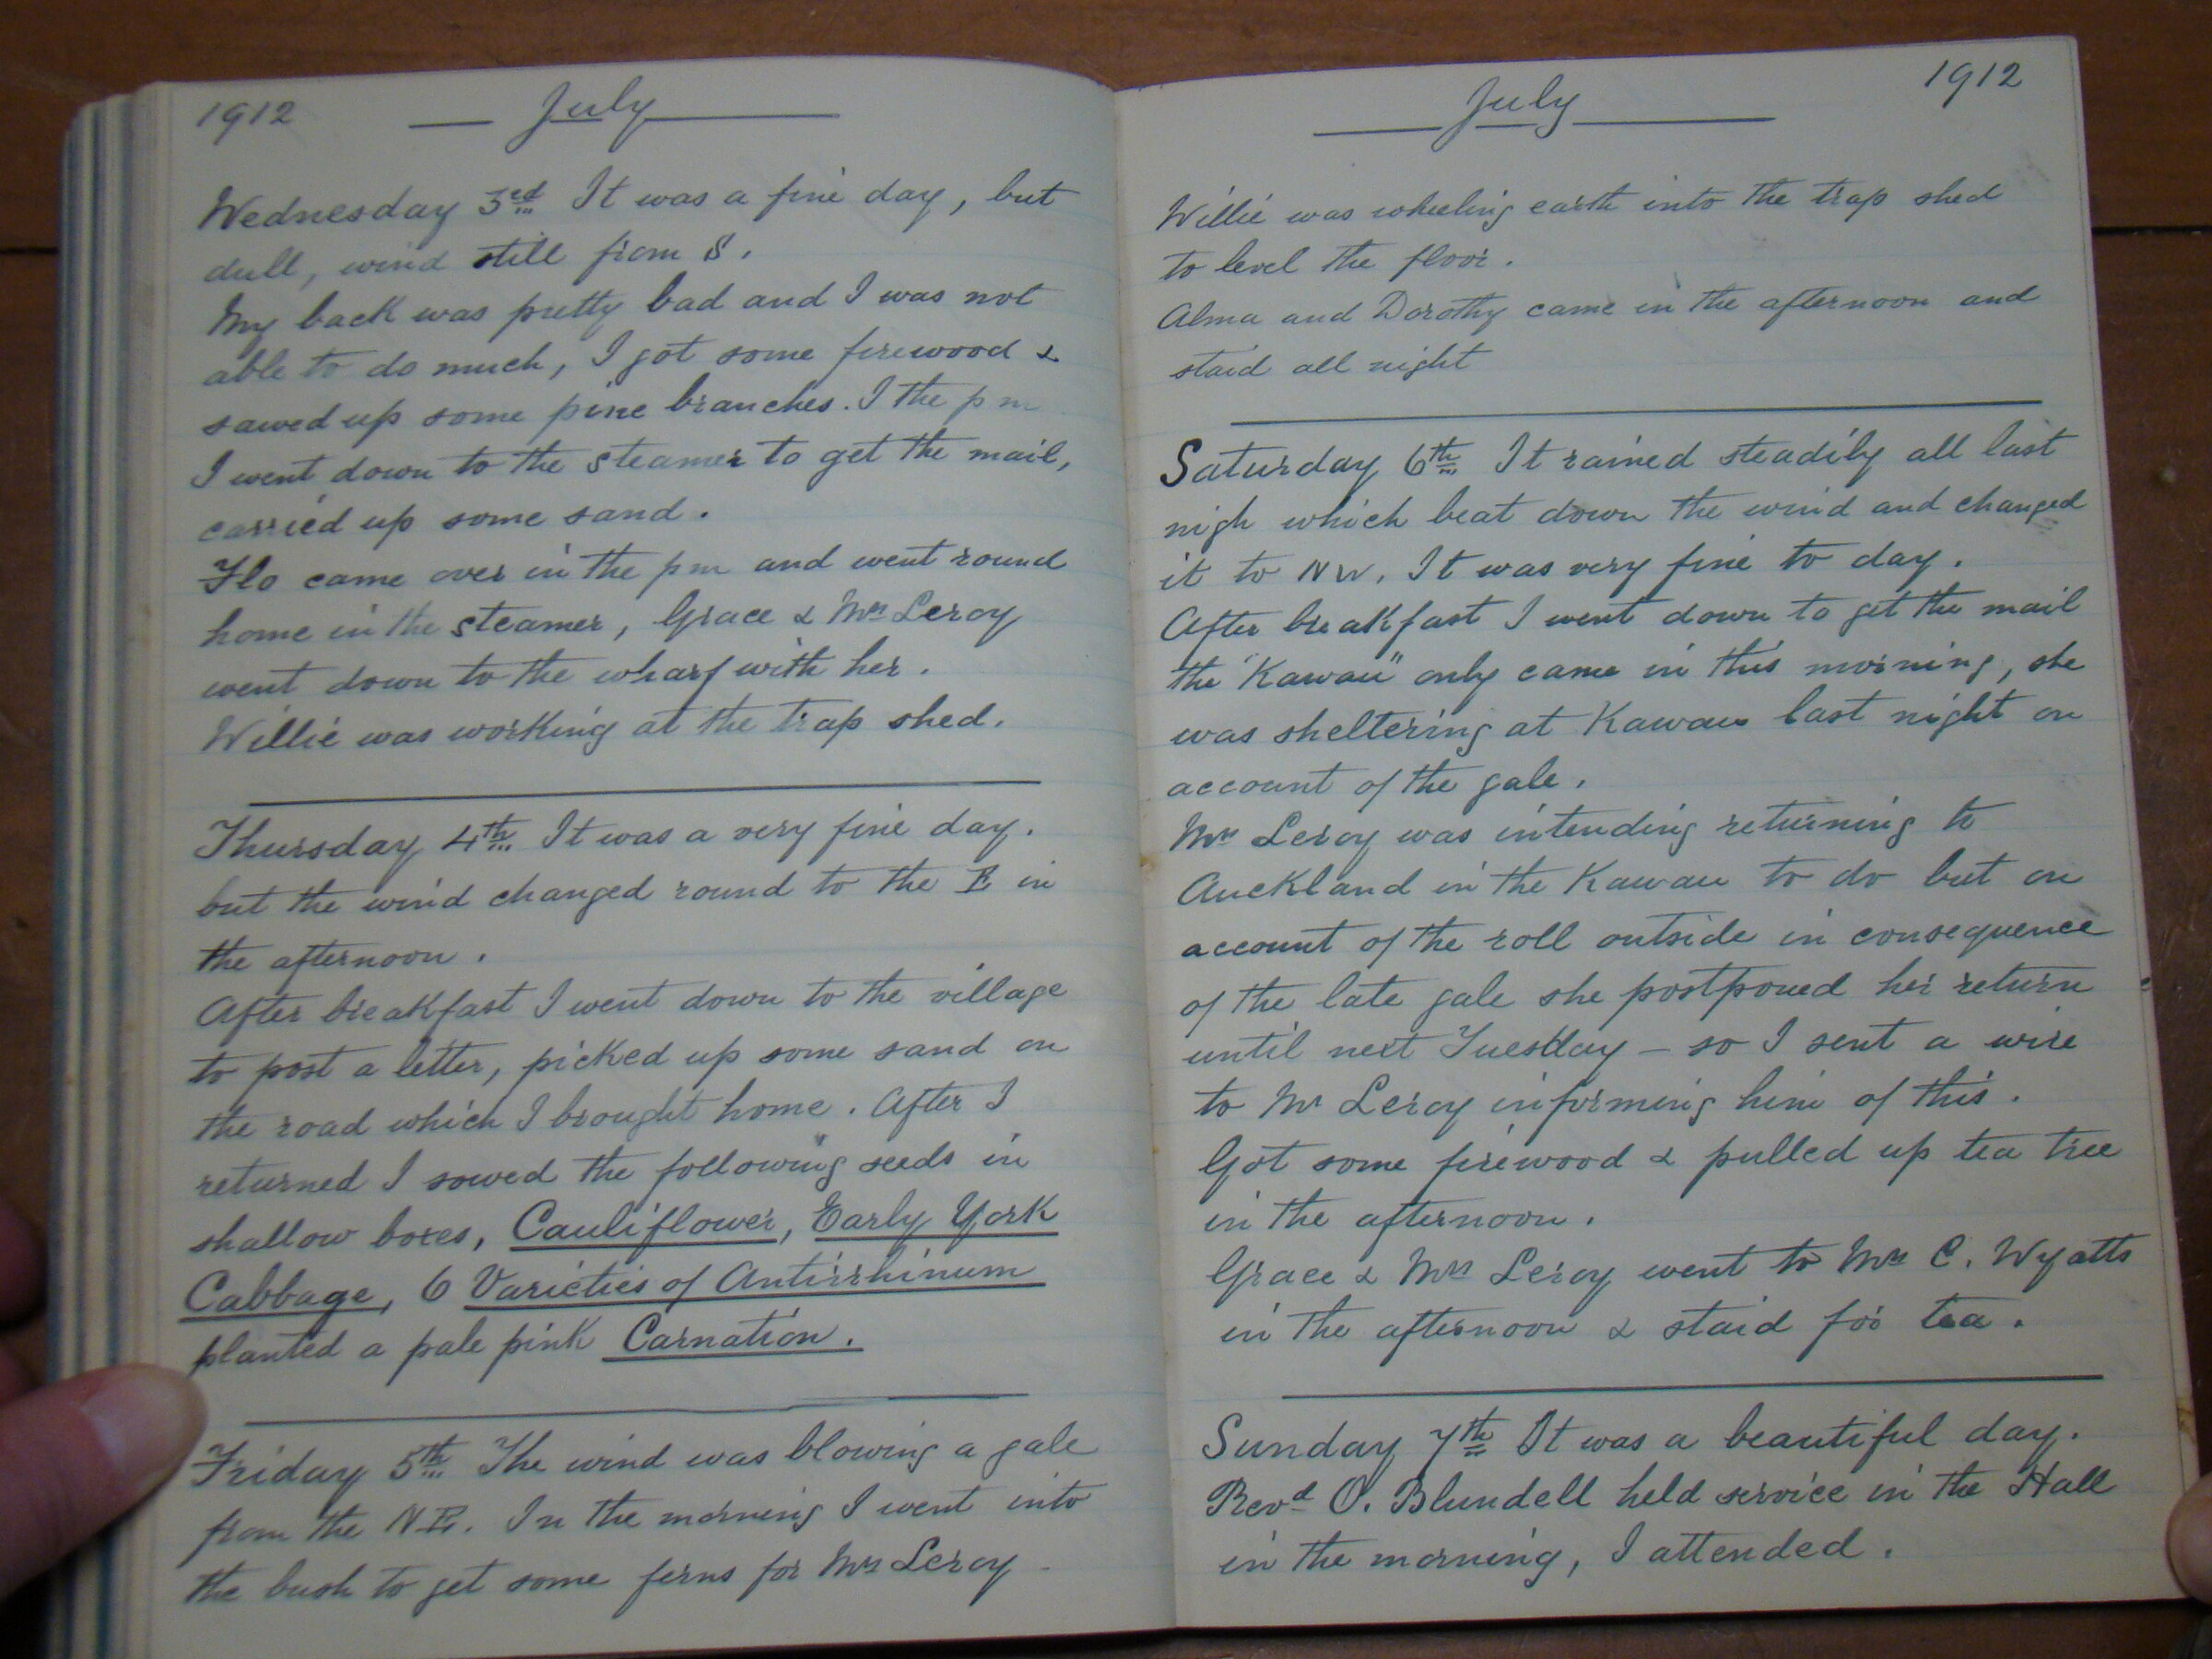 1912 July
Wednesday 3rd It was a fine day, but
dull, wind still from S.
My back was pretty bad and I was not
able to do much, I got some firewood &
sawed up some pine branches. I the pm
I went down to the steamer to get the mail,
carried up some sand.
Flo came over in the pm and went round
home in the steamer, Grace & Mrs Leroy
went down to the wharf with her.
Willie was working at the trap shed.
Thursday 4th It was a very fine day.
but the wind changed round to the E in
the afternoon.
After breakfast I went down to the village
to post a letter, picked up some sand on
the road which I brought home. After I
returned I sowed the following seeds in
shallow boxes, Cauliflower, Early York
Cabbage, 6 Varieties of Antirrhinum
planted a pale pink Carnation.
Friday 5th The wind was blowing a gale
from the NE. In the morning I went into
the bush to get some ferns for Mrs Leroy
July 1912
Willie was wheeling earth into the trap shed
to level the floor.
Alma and Dorothy came in the afternoon and
staid all night
Saturday 6th It rained steadily all last
nigh which beat down the wind and changed
it to NW. It was very fine to day.
After breakfast I went down to get the mail
the "Kawau" only came in this morning, she
was sheltering at Kawau last night on
account of the gale.
Mrs Leroy was intending returning to
Auckland in the Kawau to do but on
account of the roll outside in consequence
of the late gale she postponed her return
until next Tuesday – so I sent a wire
to Mr Leroy informing him of this.
Got some firewood & pulled up tea tree
in the afternoon.
Grace & Mrs Leroy went to Mrs C. Wyatts
in the afternoon & staid for tea.
Sunday 7th It was a beautiful day.
Revd O. Blundell held service in the Hall
in the morning, I attended.